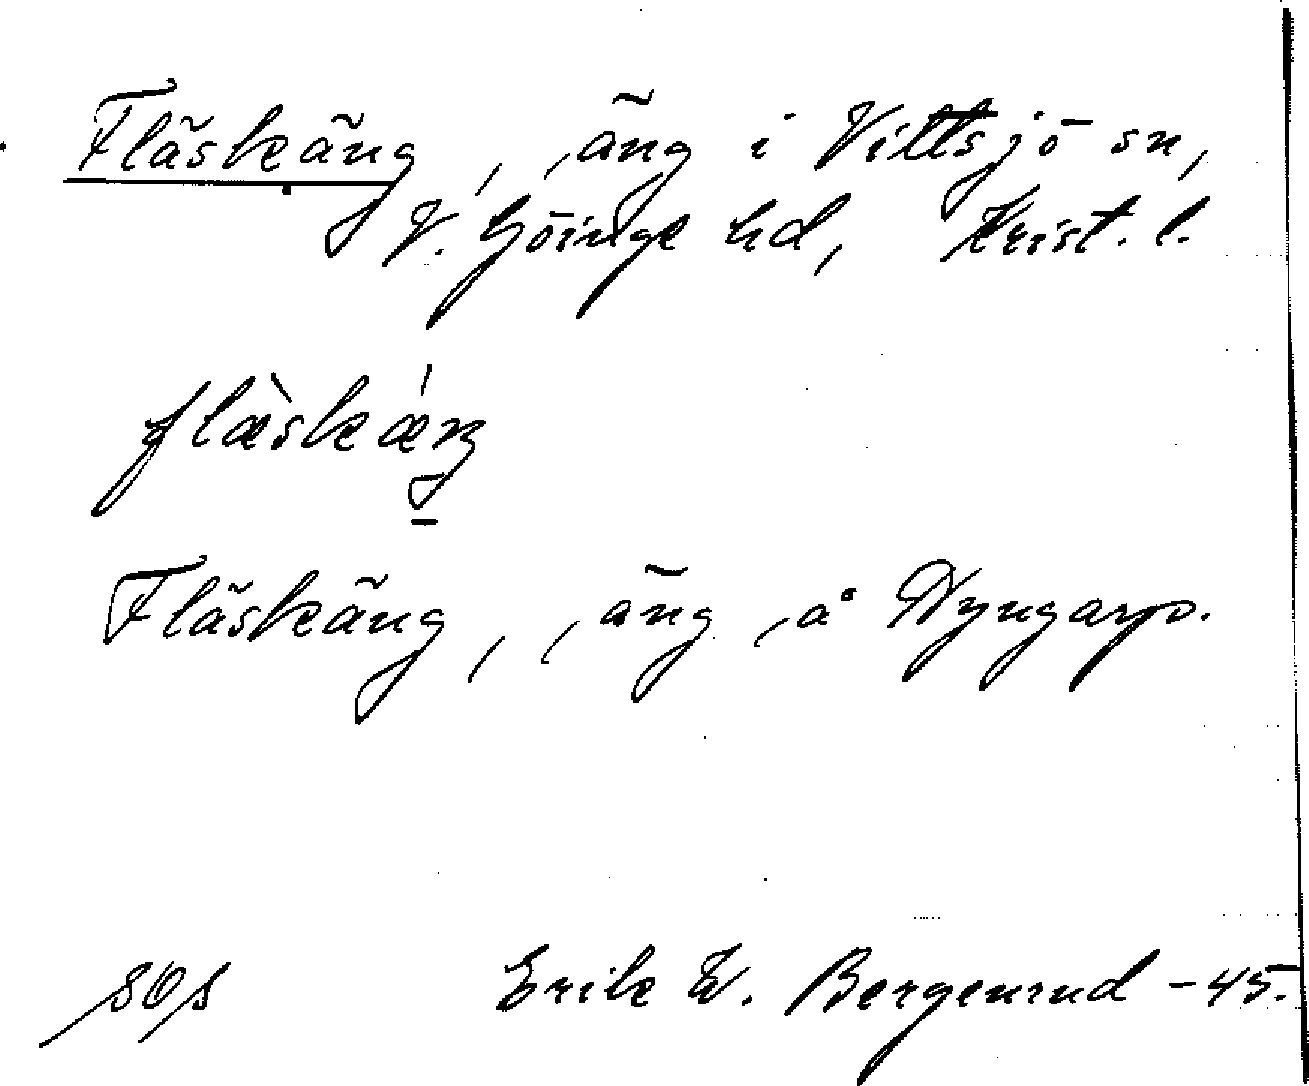 Fläskäng, äng i Vittsjö sn,
V. Göinge hd, Krist. l.
flæ̀skǽŋ
Fläskäng, äng å Nyngarp.
Erik W. Bergenrud -45.